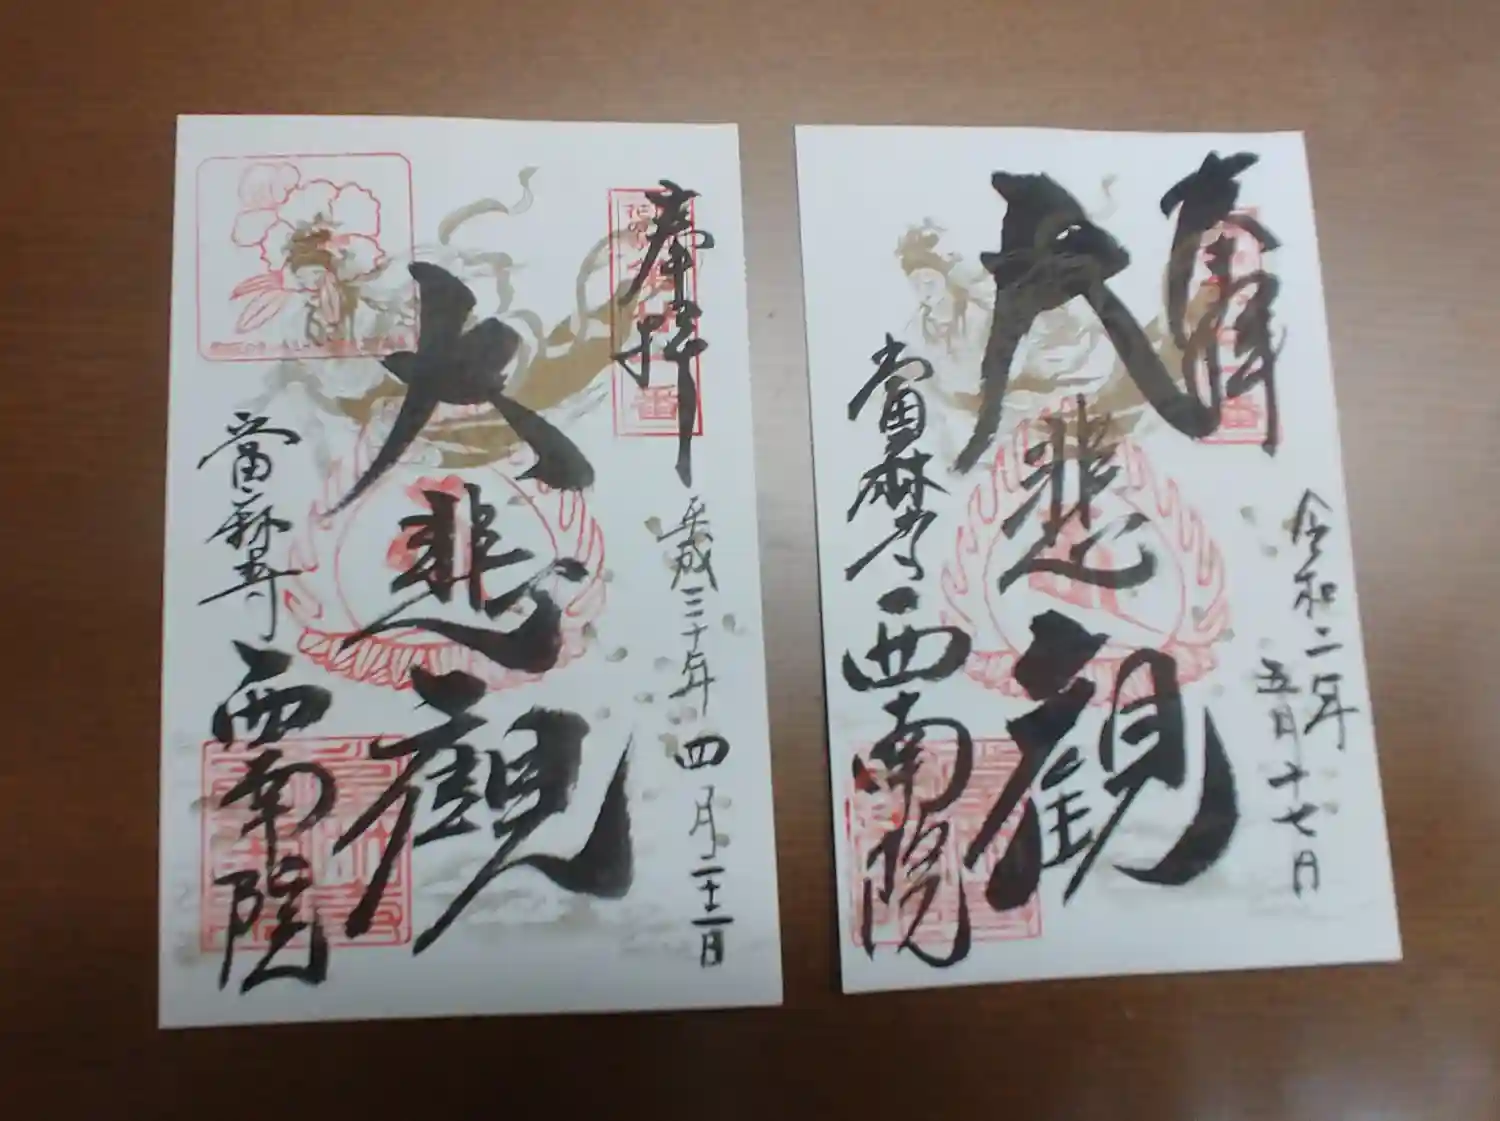 奉拝
平成三十年四月二十二日
大悲観
當麻寺
西南院
奉拝
令和二年
五月十七日
大悲観
當麻寺
西南院